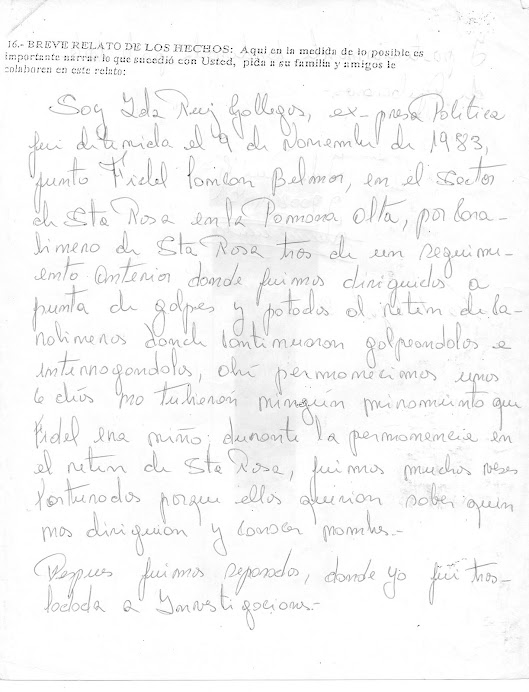 16.- BREVE RELATO DE LOS HECHOS: Aquí en la medida de lo posible es
importante narrar lo que sucedió con Usted, pida a su familia y amigos le
colaboren en este relato:
Soy Ida Ruiz Gallegos, ex-presa Política
fui detenida el 9 de Noviembre de 1983,
junto Fidel Belmar, en el Sector
de Sta Rosa en la Pomona Alta, por Cara-
bineros de Sta Rosa tras de un seguimi-
ento anterior donde fuimos dirigidos a
punta de golpes y patadas al reten de Ca-
rabineros donde continuaron golpeandolos e
interrogandolos, ahí permanecimos unos
6 días no tubieron ningún miramiento que
Fidel era niño; durante la permanencia en
el reten de Sta Rosa, fuimos muchas veses
torturados porque ellos querian saber quien
nos dirigian y conocer nombres.-
Despues fuimos separados, donde yo fui tras-
ladada a Investigaciones.-